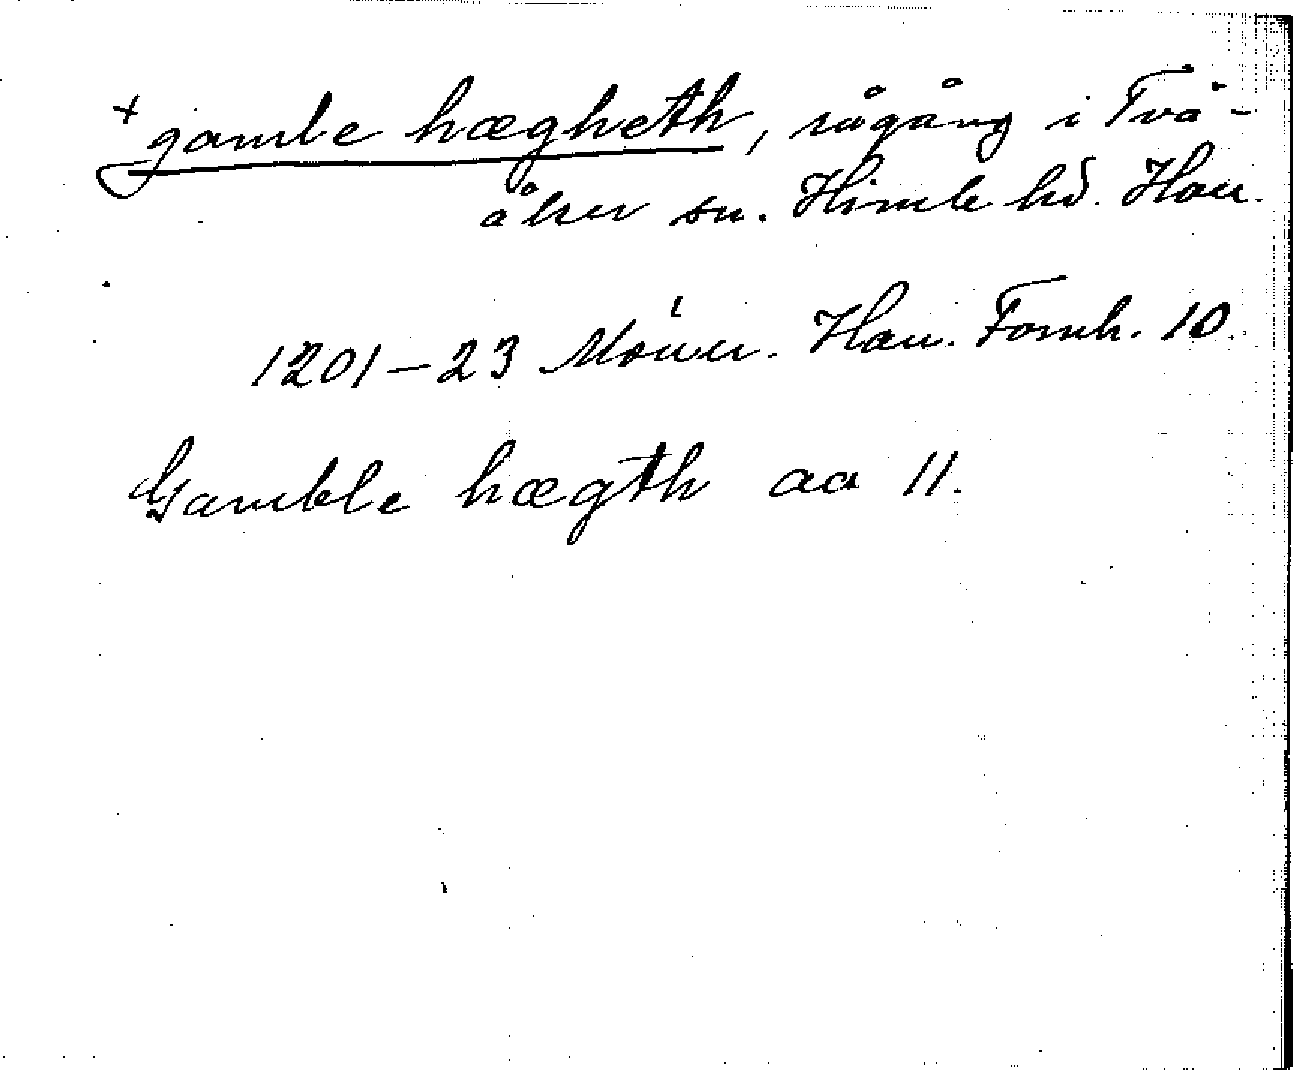 + gamle hægheth, rågång i Två-
åker sn. Himle hd. Hall.
1201–23 Hall. Fornh. 10.
Gamble hægth aa 11.